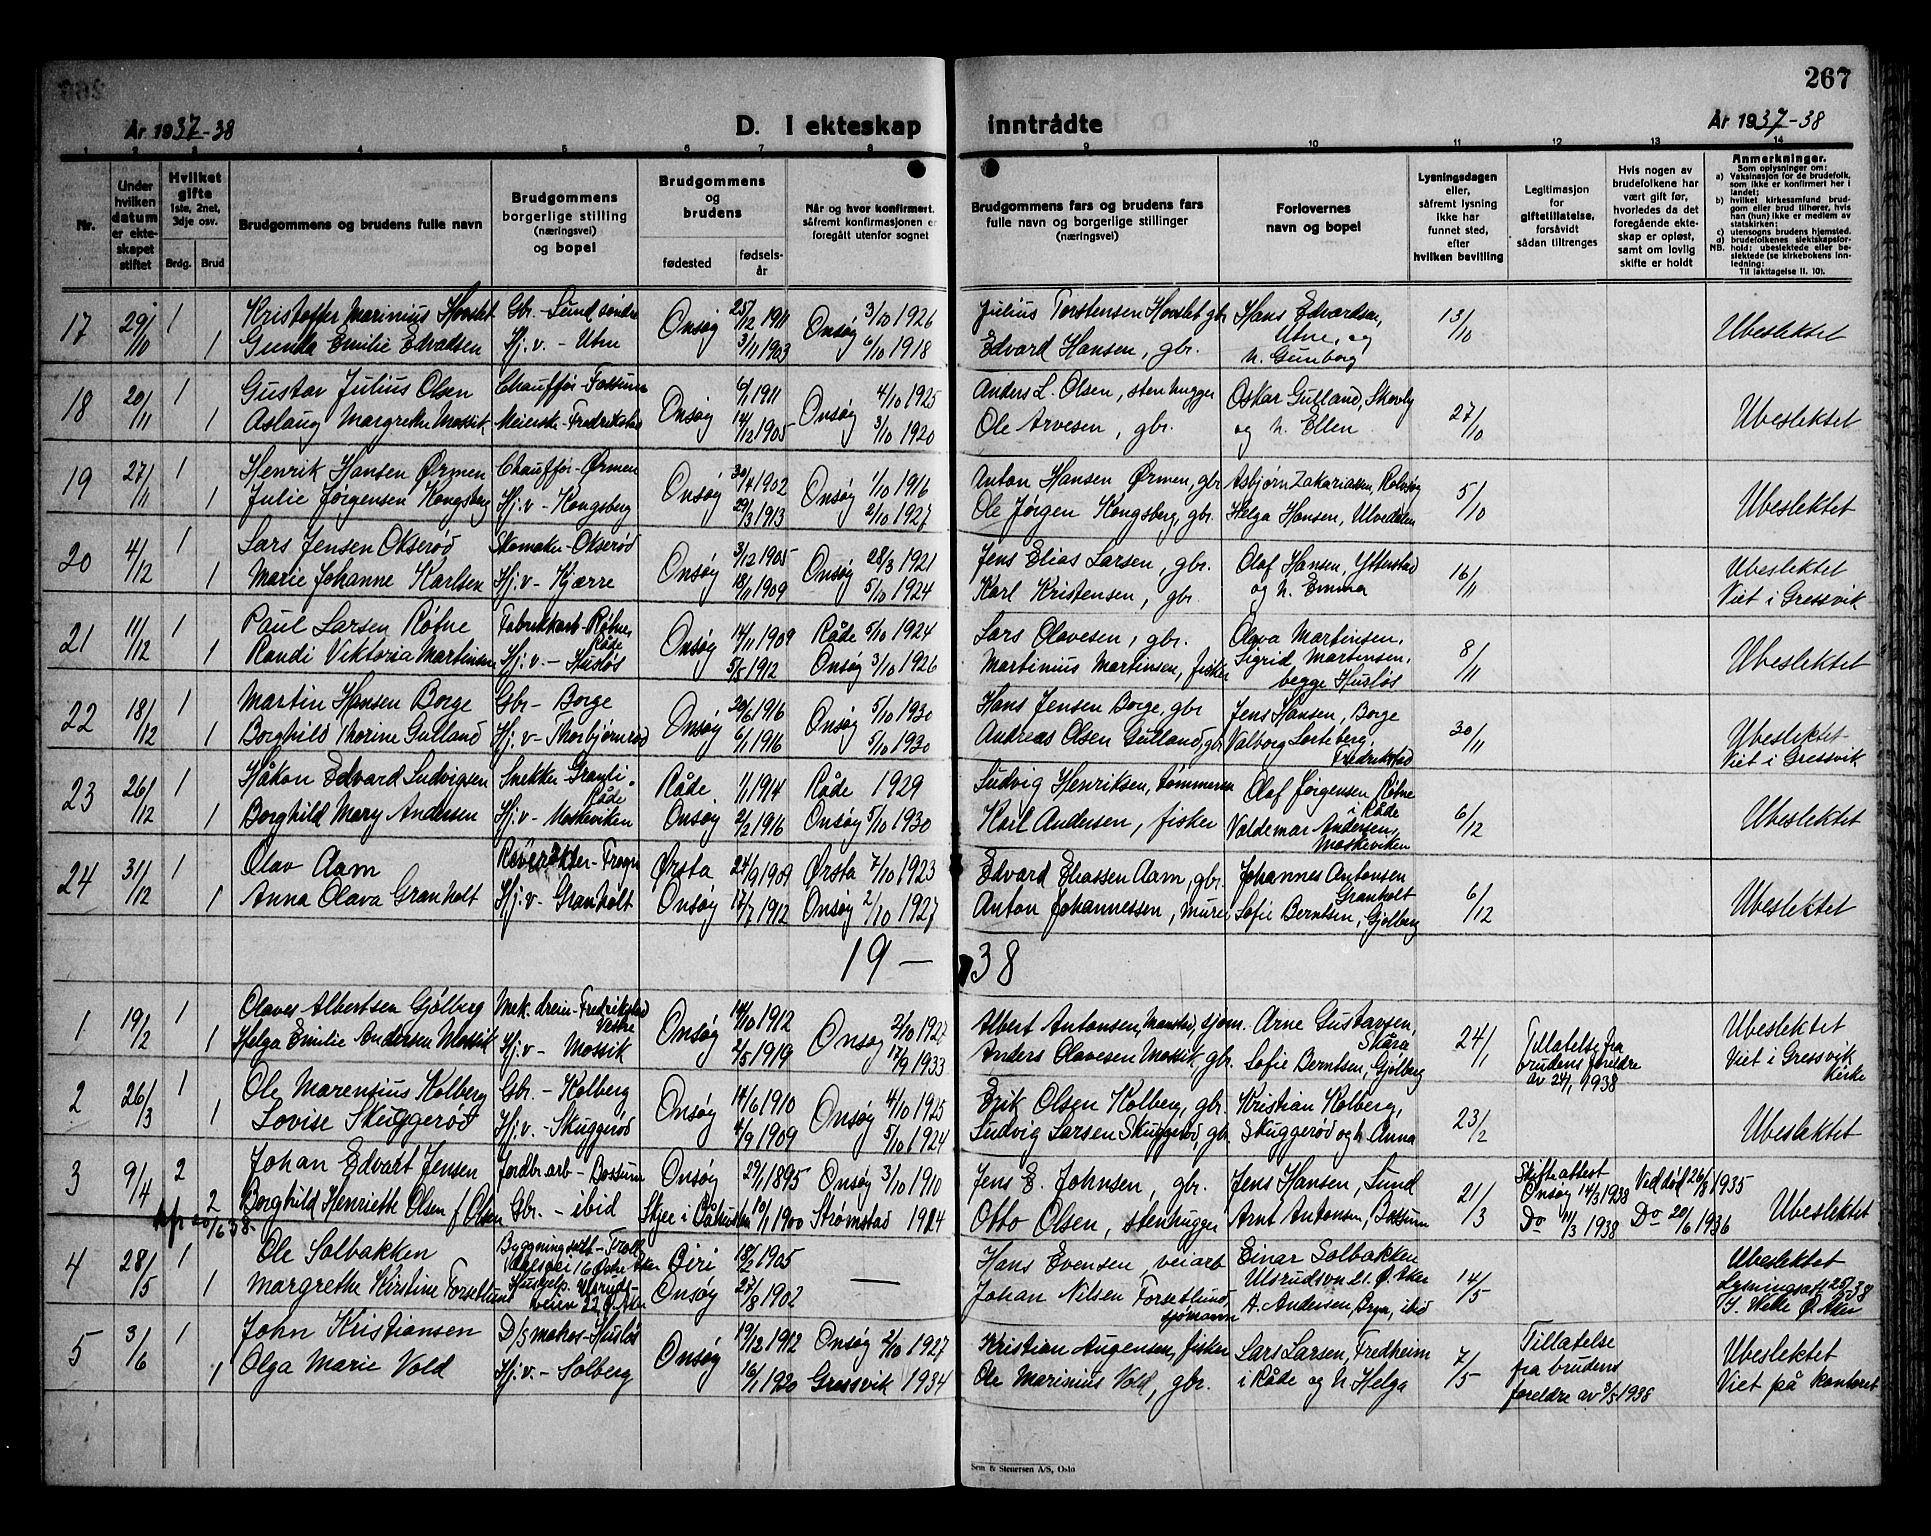 267
År 1937-38
D. I ekteskap inntrådte
År 1937-38
1 2 3 4 5 6 7 8 9 10 11 12 13 14
Nr.
Under hvilken datum er ekteskapet stiftet
Hvilket gifte 1ste, 2net, 3dje osv.
Brdg. Brud
Brudgommens og brudens fulle navn
Brudgommens borgerlige stilling (næringsvei) og bopel
Brudgommens og brudens
fødested
fødselsår
Når og hvor konfirmert, såfremt konfirmasjonen er foregått utenfor sognet
Brudgommens fars og brudens fars fulle navn og borgerlige stillinger (næringsvei)
Forlovernes navn og bopel
Lysningsdagen eller, såfremt lysning ikke har funnet sted, efter hvilken bevilling
Legitimasjon for giftetillatelse, forsåvidt sådan tiltrenges
Hvis nogen av brudefolkene har vært gift før, hvorledes da det foregående ekteskap er opløst, samt om lovlig skifte er holdt
Anmerkninger.
Som oplysninger om:
a) Vaksinasjon for de brudefolk, som ikke er konfirmert her i landet;
b) hvilket kirkesamfund brudgom eller brud tilhører, hvis han (hun) ikke er medlem av statskirken;
c) utensogns brudens hjemsted.
d) brudefolkenes slektskapsforhold: ubeslektede eller beslektede (se kirkebokens innledning:
NB. Til iakttagelse II. 10).
17 29/10 1 Kristoffer Marinius Hovslet Gbr. - Lund søndre Onsøy 25/12 1911 Onsøy 3/10 1926 Julius Torstensen Hovslet gbr Hans Edvardsen, 13/10 Ubeslektet
1 Gunda Emilie Edvadsen Hj.v. - Utne 3/11 1903 6/10 1918 Edvard Hansen, gbr. Utne, og h. Gunborg
18 20/11 1 Gustav Julius Olsen Chauffør - Fossum Onsøy 6/1 1911 Onsøy 4/10 1925 Anders L. Olsen, stenhugger Oskar Gulland, Skovly 27/10 Ubeslektet
1 Aslaug Margrethe Mossik Meierske - Fredrikstad 14/12 1905 3/10 1920 Ole Arvesen, gbr. og h. Ellen
19 27/11 1 Henrik Hansen Ørmen Chauffør - Ørmen Onsøy 30/4 1902 Onsøy 1/10 1916 Anton Hansen Ørmen, gbr Asbjørn Zakariassen, Rolvsøy 5/10 Ubeslektet
1 Julie Jørgensen Kongsberg Hj.v - Kongsberg 29/3 1913 2/10 1927 Ole Jørgen Kongsberg, gbr. Helga Hansen, Ulvedalen
20 4/12 1 Lars Jensen Okserød Skomaker - Okserød Onsøy 3/12 1905 Onsøy 28/3 1921 Jens Elias Larsen, gbr. Olaf Hansen, Ytterstad 16/11 Ubeslektet
1 Marie Johanne Karlsen Hj.v - Kjærre 18/11 1909 5/10 1924 Karl Kristensen, gbr. og h. Emma Viet i Gressvik
21 11/12 1 Paul Larsen Røtne Fabrikkarb - Røtne, Råde Onsøy 14/11 1909 Råde 5/10 1924 Lars Olavesen, gbr. Olava Martinsen, 8/11 Ubeslektet
1 Randi Viktoria Martinsen Hj.v. - Husløs 5/8 1912 Onsøy 3/10 1926 Martinius Martinsen, fisker Sigrid Martensen, begge Husløs
22 18/12 1 Martin Hansen Borge Gbr - Borge Onsøy 20/6 1916 Onsøy 5/10 1930 Hans Jensen Borge, gbr Jens Hansen, Borge 30/11 Ubeslektet
1 Borghild Thorine Gulland Hj.v - Thorbjørnrød 6/1 1916 5/10 1930 Andreas Olsen Gulland, gbr Valborg Sorteberg, Fredrikstad Viet i Gressvik
23 26/12 1 Håkon Edvard Ludvigsen Snekker Granli - Råde Råde 1/1 1914 Råde 1929 Ludvig Henriksen, tømmerm Olaf Jørgensen Røtne i Råde 6/12 Ubeslektet
1 Borghild Mary Andersen Hj.v - Moskeviken Onsøy 2/2 1916 Onsøy 5/10 1930 Karl Andersen, fisker Valdemar Andersen, Moskeviken
24 31/12 1 Olav Aam Røverøkter - Frogn Ørsta 24/9 1909 Ørsta 7/10 1923 Edvard Eliassen Aam, gbr. Johannes Antonsen Granholt 6/12 Ubeslektet
1 Anna Olava Granholt Hj.v - Granholt Onsøy 17/7 1912 Onsøy 2/10 1927 Anton Johannessen, murer Sofie Berntsen, Gjølberg
19 - 38
1 19/2 1 Olaves Albertsen Gjølberg Mek. dreier - Fredrikstad Vestre Onsøy 14/10 1912 Onsøy 2/10 1927 Albert Antonsen, sjøm. Arne Gustavsen, Skåra 24/1 Tillatelse fra brudens foreldre av 24/1 1938 Ubeslektet
1 Helga Emilie Andersen Mossik Hj.v - Mossik 2/5 1919 17/9 1933 Anders Olavesen Mossik, gbr. Sofie Berntsen, Gjølberg Viet i Gressvik Kirke
2 26/3 1 Ole Marensius Kolberg Gbr. - Kolberg Onsøy 14/6 1910 Onsøy 4/10 1925 Erik Olsen Kolberg, gbr Kristian Kolberg, 23/2 Ubeslektet
1 Lovise Skuggerød Hj.v. - Skuggerød 4/9 1909 5/10 1924 Ludvig Larsen Skuggerød, gbr Skuggerød og h. Anna
3 9/4 2 Johan Edvart Jensen Jordbr.arb - Bossum Onsøy 29/1 1895 Onsøy 3/10 1910 Jens E. Johnsen, gbr. Jens Hansen, Lund 21/3 Skifteattest Onsøy 14/3 1938 Ved død 26/8 1935 Ubeslektet
2 Borghild Henriette Olsen f. Olsen Gbr. - ibid Skjee i 10/1 1900 Strømstad 1914 Otto Olsen, stenhugger Arnt Antonsen, Bossum Do 11/3 1938 Do 20/6 1936
20/6 38.
4 28/5 1 Ole Solbakken Biri 18/2 1905 — Hans Evensen, veiarb Einar Solbakken 14/5 Ubeslektet
1 Margrethe Kirstine Forsetlund Onsøy 27/8 1902 Johan Nilsen Forsetlund, sjømann A. Andersen, Bryn, ibid
5 3/6 1 John Kristiansen D/S makos - Husløs Onsøy 19/12 1912 Onsøy 2/10 1927 Kristian Augensen, fisker Lars Larsen, Fredheim 7/5 Tillatelse fra brudens foreldre av 3/5 1938 Ubeslektet
1 Olga Marie Vold Hj.v. - Solberg 16/1 1920 Gressvik 1934 Ole Marinius Vold, gbr. i Råde og h. Helga Viet på kontoret
Sem & Stenersen A/S, Oslo